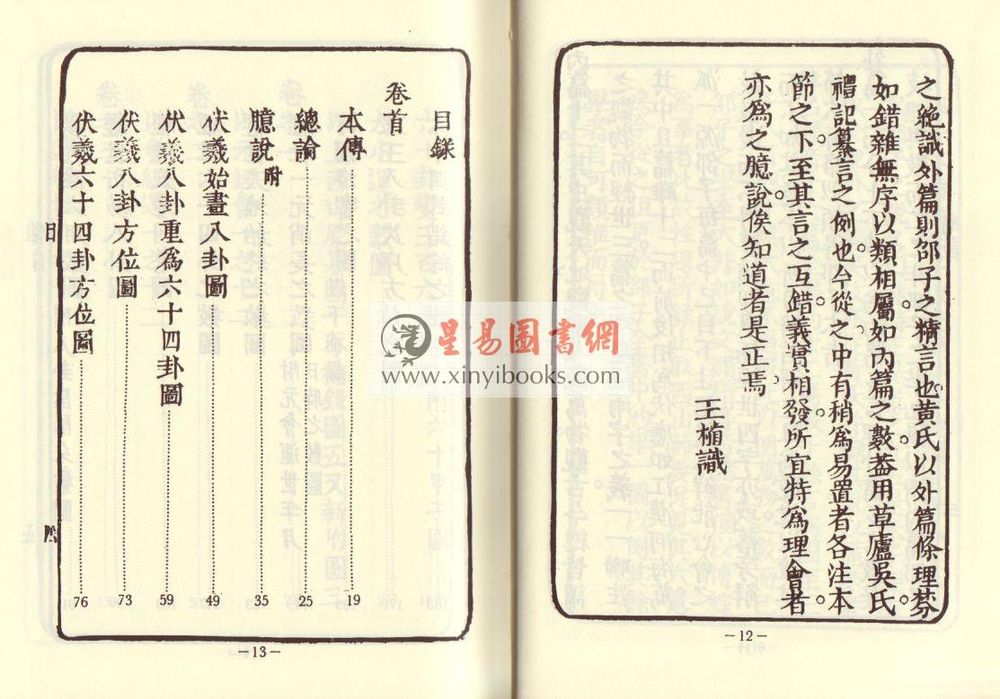 之絶識外篇則邵子之精言也黃氏以外篇條理棼
如錯雜無序以類相屬如內篇之數葢用草廬吳氏
禮記纂言之例也今從之中有稍爲易置者各注本
節之下至其言之互錯義實相發所宜特爲理會者
亦爲之臆說俟知道者是正焉
王植識
—12—
目錄
卷首
本傳 19
總論 25
臆說附 35
伏羲始畫八卦圖 49
伏羲八卦重爲六十四卦圖 59
伏羲八卦方位圖 73
伏羲六十四卦方位圖 76
目
—13—
星易圖書網
www.xinyibooks.com